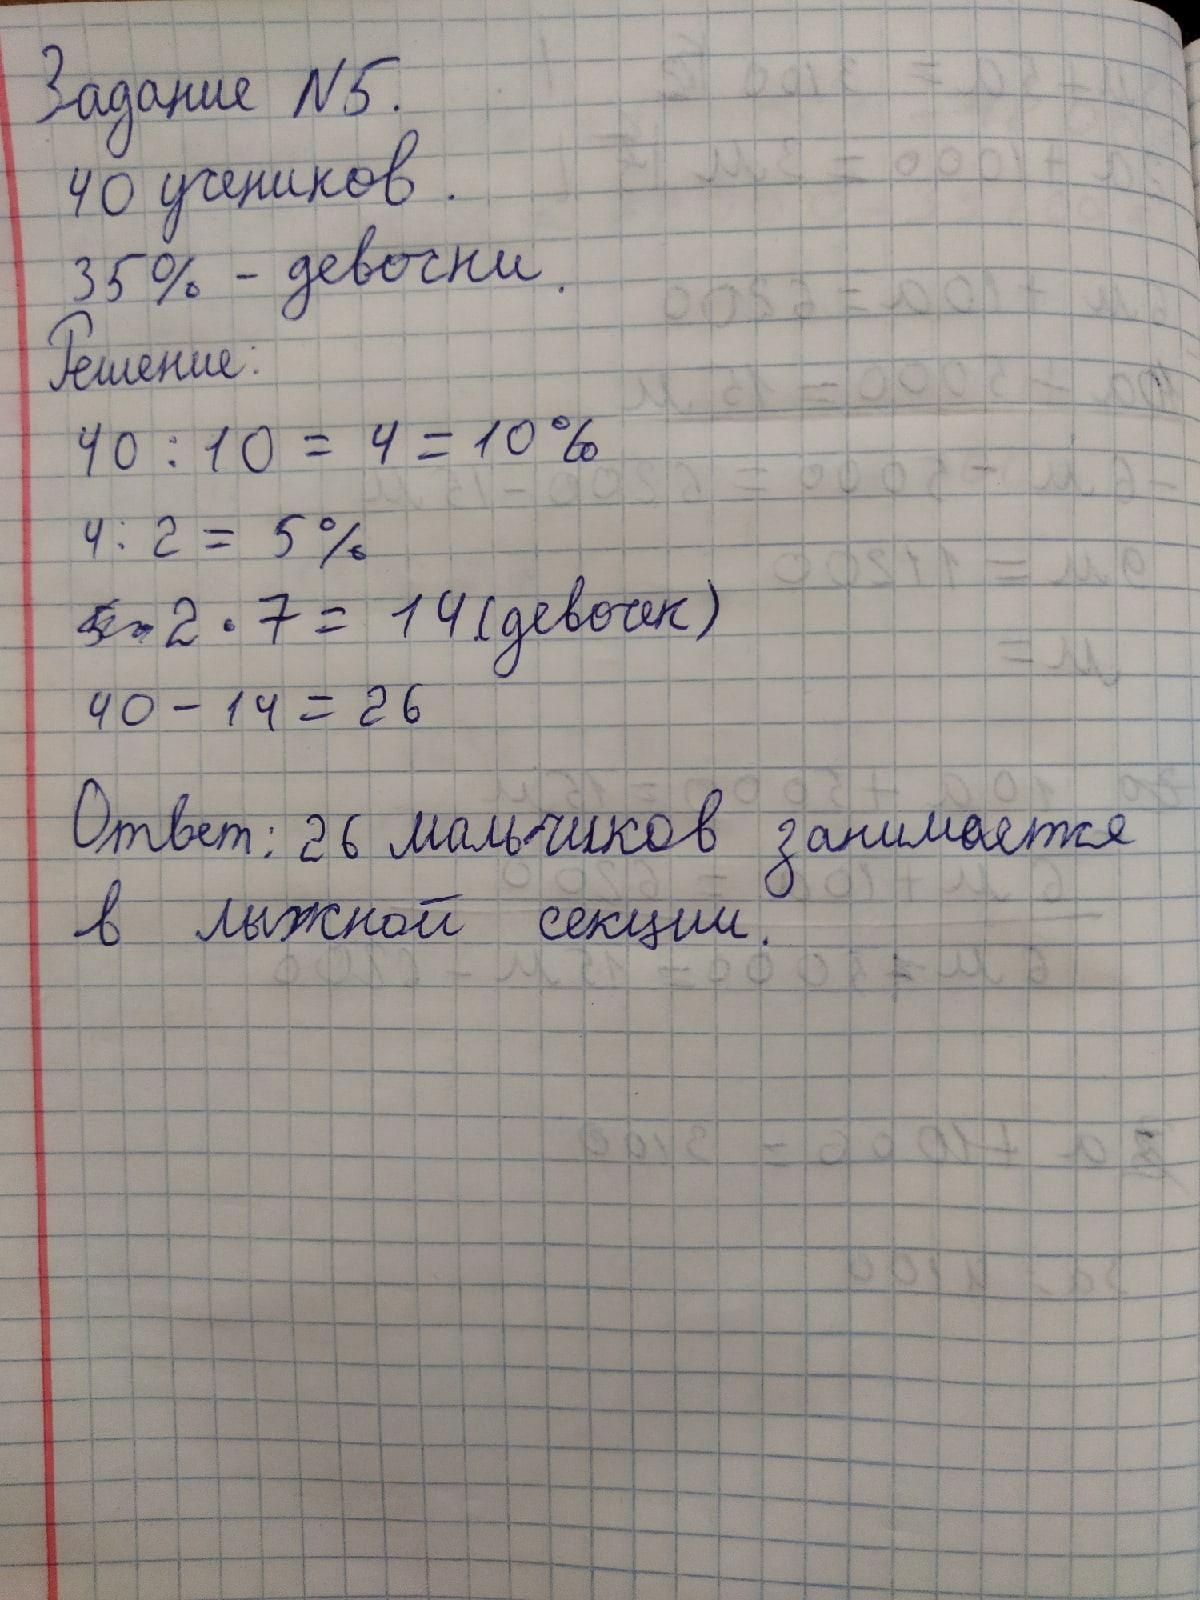 Задание N5.
40 учеников.
35% - девочки.
Решение:
40 : 10 = 4 = 10%
4 : 2 = 5%
2 · 7 = 14 (девочек)
40 - 14 = 26
Ответ: 26 мальчиков занимается
в лыжной секции.